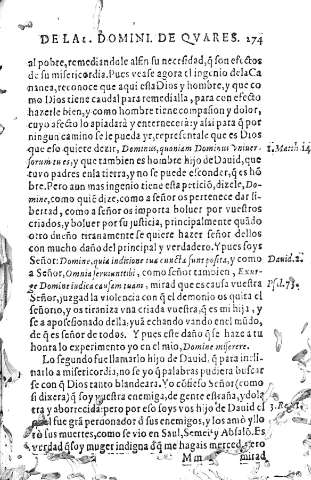 DE LA I. DOMINI. DE QVARES. 274
al pobre, remediandole assen su necesidad, q̃ son efectos
de su misericordia. Pues vease agora el ingenio de la Ca
nanea, reconoce que aqui està Dios y hombre, y que co
mo Dios tiene caudal para remedialla, para con efecto
hazerle bien, y como hombre tiene compasion y dolor,
cuyo afecto lo apiadarà y enternecerà: y assi para q̃ por
ningun camino se le pueda yr, representale que es Dios
que eso quiere dezir, Dominus, quoniam Dominus vniuer-
sorum tu es, y que tambien es hombre hijo de Dauid, que
tuvo padres en la tierra, y no se puede esconder, q̃ es hõ
bre. Pero aun mas ingenio tiene esta peticiõ, dizele, Do-
mine, como quiẽ dize, como a señor os pertenece dar li-
bertad, como a señor os importa boluer por vuestros
criados, y boluer por su justicia, principalmente quãdo
otro dueño tiranamente se quiere hazer señor dellos
con mucho daño del principal y verdadero. Y pues soys
Señor: Domine, quia in ditione tua cuncta sunt posita, y como
a Señor, Omnia seruiunt tibi, como señor tambien, Exur-
ge Domine iudica causam tuam, mirad que es causa vuestra
Señor, juzgad la violencia con q̃ el demonio os quita el
señorio, y os tiraniza vna criada vuestra, q̃ es mi hija, y
se a aposesionado della, y uà echando vando en el mũdo,
de q̃ es señor de todos. Y pues este daño q̃ se haze a tu
honra lo experimento yo en el mio, Domine miserere.
Lo segundo fue llamarlo hijo de Dauid, q̃ para incli-
narlo a misericordia, no se yo q̃ palabras pudiera buscar
se con q̃ Dios tanto blandeara. Yo cõfieso Señor (como
si dixera) q̃ soy vuestra enemiga, de gente estraña, ydola
tra y aborrecida: pero por eso soys vos hijo de Dauid el
qual fue grã perdonador de sus enemigos, y los amò y llo
rò sus muertes, como se vio en Saul, Semei, y Absalõ. Es
verdad q̃ soy muger indigna dq̃ me hagais merced, pero
Mm mirad
1. Match. 14
Dauid. 2.
Psal. 73.
3. Reg.